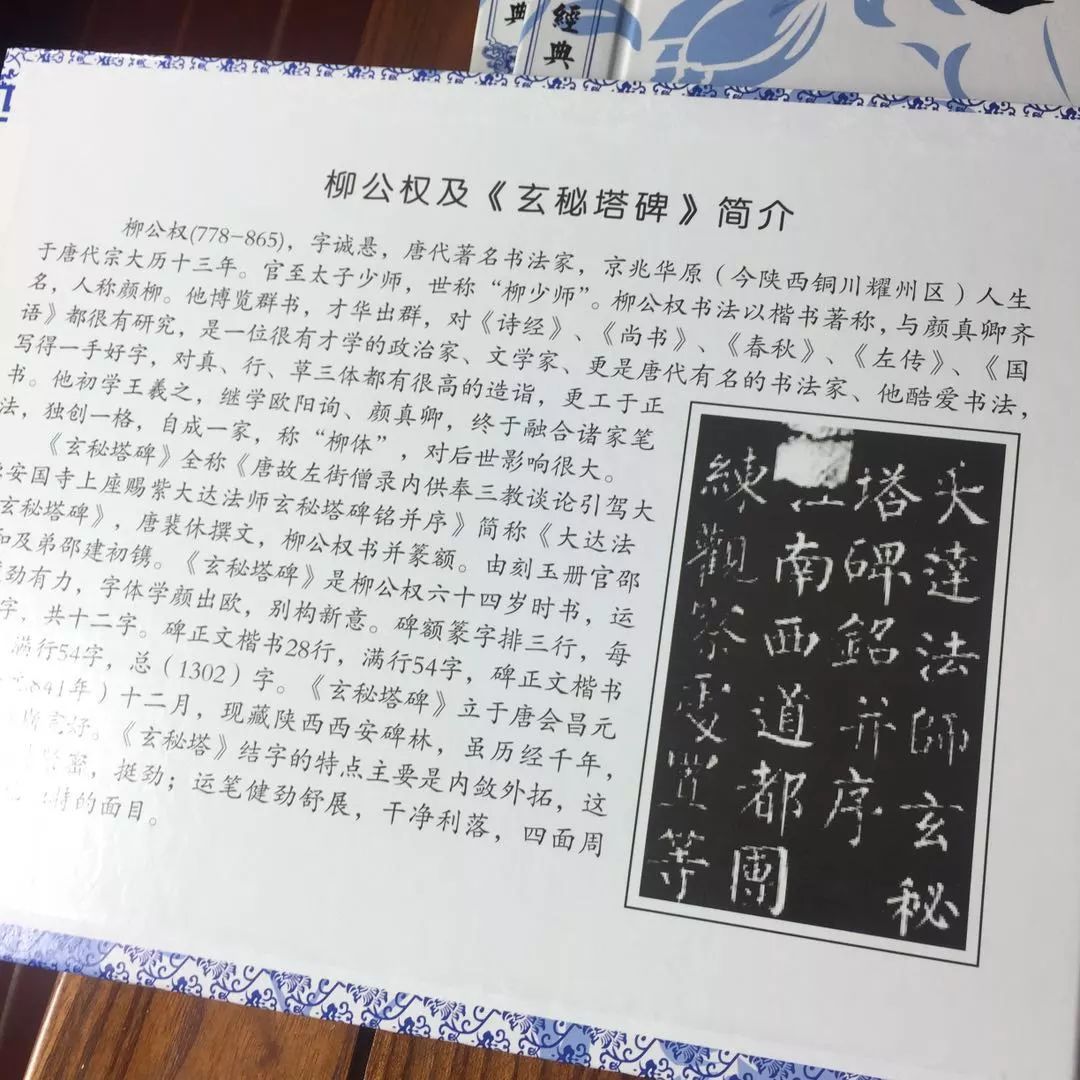 典
經典
柳公权及《玄秘塔碑》简介
柳公权(778-865)，字诚悬，唐代著名书法家，京兆华原（今陕西铜川耀州区）人生
于唐代宗大历十三年。官至太子少师，世称“柳少师”。柳公权书法以楷书著称，与颜真卿齐
名，人称颜柳。他博览群书，才华出群，对《诗经》、《尚书》、《春秋》、《左传》、《国
语》都很有研究，是一位很有才学的政治家、文学家、更是唐代有名的书法家、他酷爱书法，
写得一手好字，对真、行、草三体都有很高的造诣，更工于正
书。他初学王羲之，继学欧阳询、颜真卿，终于融合诸家笔
法，独创一格，自成一家，称“柳体”，对后世影响很大。
《玄秘塔碑》全称《唐故左街僧录内供奉三教谈论引驾大
安国寺上座赐紫大达法师玄秘塔碑铭并序》简称《大达法
玄秘塔碑》，唐裴休撰文，柳公权书并篆额。由刻玉册官邵
和及弟邵建初镌。《玄秘塔碑》是柳公权六十四岁时书，运
劲有力，字体学颜出欧，别构新意。碑额篆字排三行，每
字，共十二字。碑正文楷书28行，满行54字，碑正文楷书
满行54字，总（1302）字。《玄秘塔碑》立于唐会昌元
841年）十二月，现藏陕西西安碑林，虽历经千年，
完好。《玄秘塔》结字的特点主要是内敛外拓，这
紧密，挺劲；运笔健劲舒展，干净利落，四面周
独特的面目。
大達法師玄秘
塔碑銘并序
南西道都團
練觀察處置等